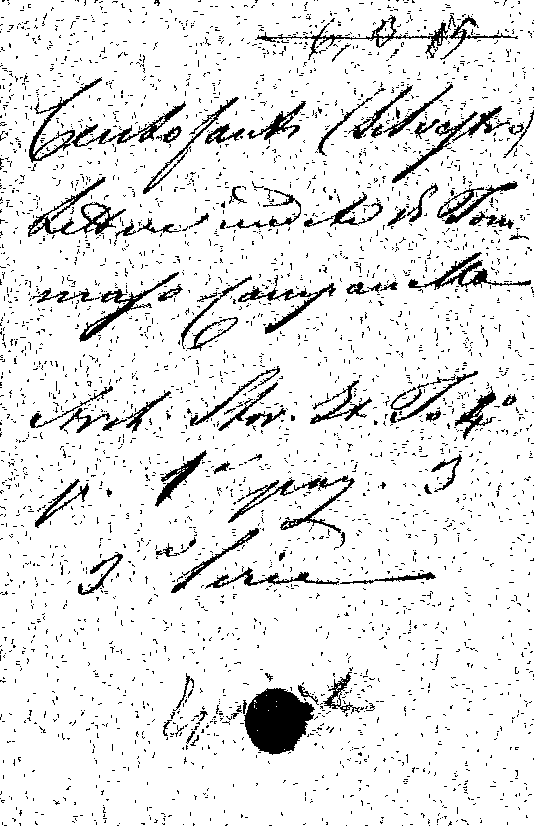 6, B, 15
Centofanti (Silvestro)
Lettere inedite di Tom-
maso Campanella
Arch. Stor. It. To. 4º
p. 1ª pag. 3
3ª Serie